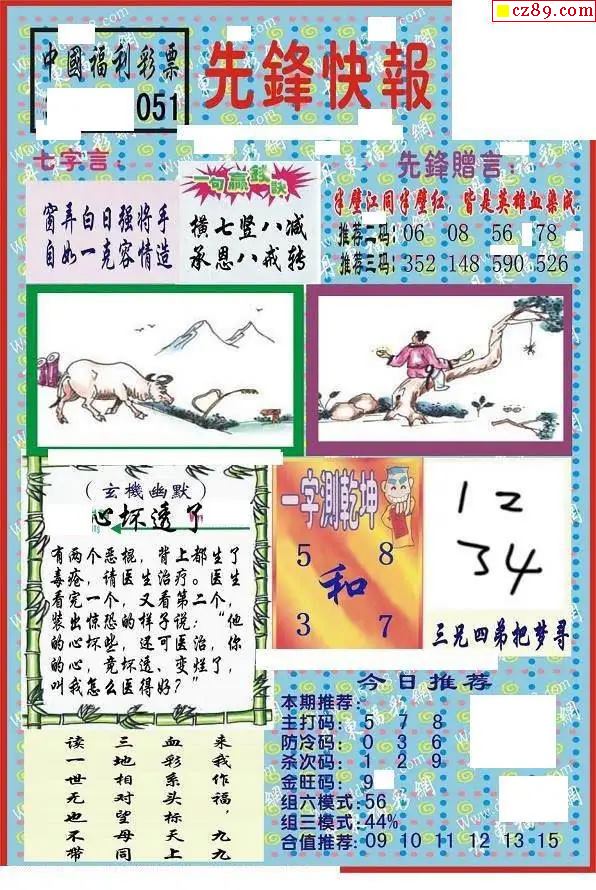 cz89.com
中國福利彩票
051
先鋒快報
七字言：
窗弄白日强將手
自如一克容情造
一句贏錢訣
橫七竖八减
承恩八戒转
先鋒贈言：
半壁江同半壁红，皆是英雄血染成
推荐二码：06 08 56 78
推荐三码：352 148 590 526
（玄機幽默）
心坏透了
有两个恶棍，背上都生了
毒疮，请医生治疗。医生
看完一个，又看第二个，
装出惊恐的样子说：“他
的心坏些，还可医治，你
的心，竟坏透、变烂了，
叫我怎么医得好？”
一字測乾坤
5 8
和
3 7
12
34
三兄四弟把梦寻
来我作福，九九
血彩系头标天上
三地相对望母同
读一世无也不带
今日推荐
本期推荐：
主打码：5 7 8
防冷码：0 3 6
杀次码：1 2 9
金旺码：9
组六模式：56
组三模式：44%
合值推荐：09 10 11 12 13 15